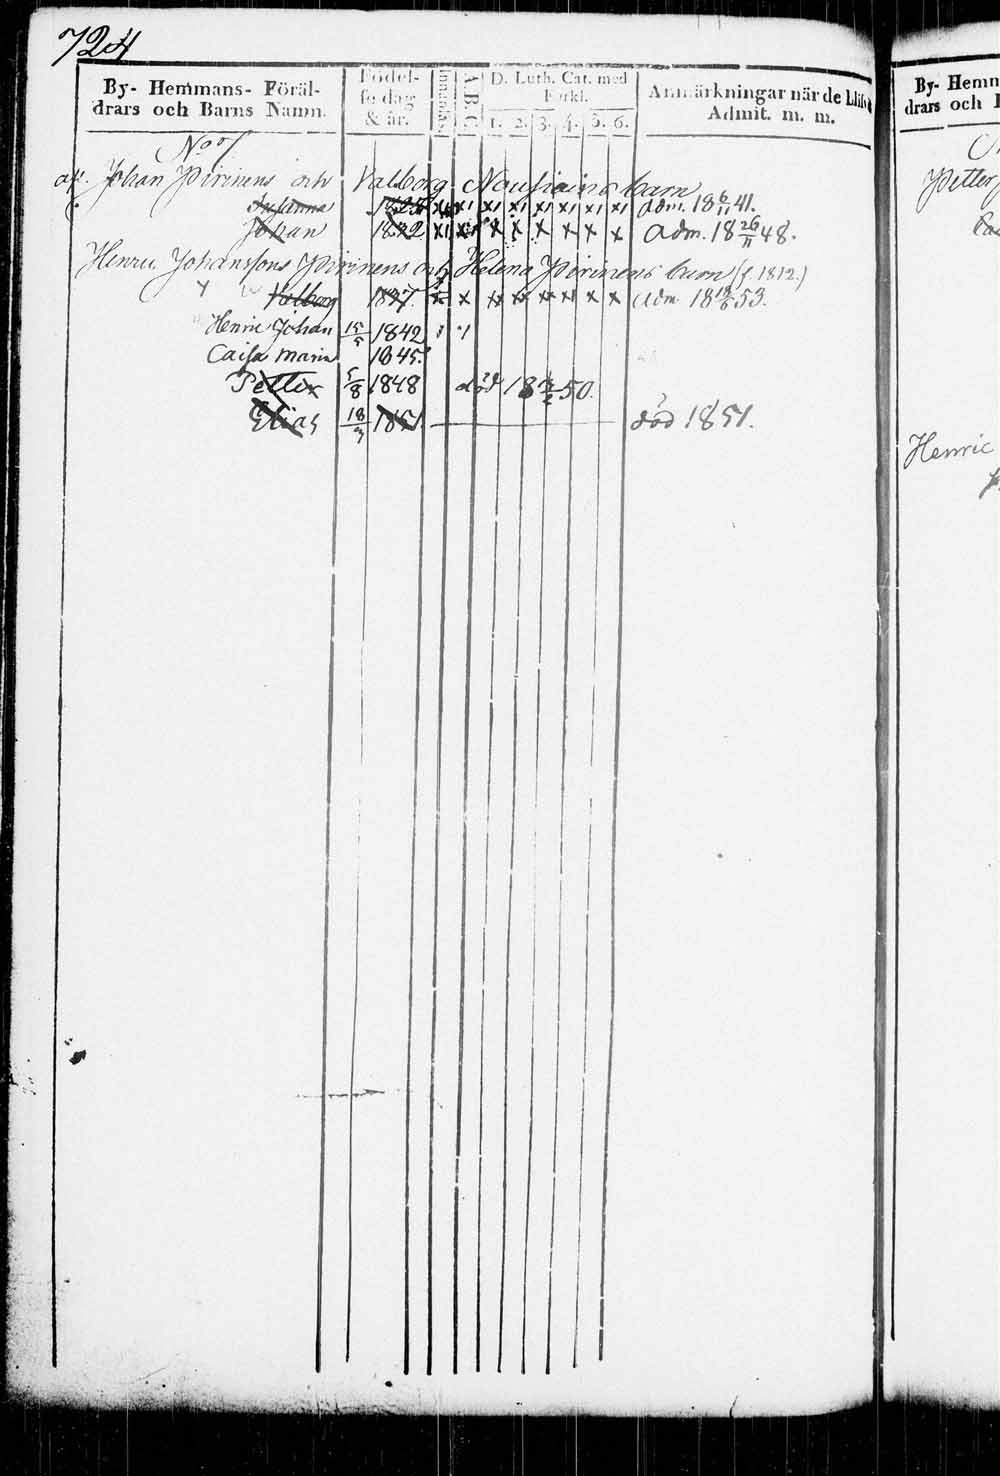 724
By- Hemmans- Föräl-
drars och Barns Namn.
Födel-
se dag
& år.
Innanläs.
A B C
D. Luth. Cat. med
Förkl.
1. 2. 3. 4. 5. 6.
Anmärkningar när de blifv
Admit. m. m.
No 7
Johan Pirinens och Valborg Nousiains barn
Susanna 1825 x x x x x x x x adm. 18 6/11 41.
Johan 1832 x x x x x x x x adm. 18 26/11 48.
Henric Johanssons Pirinens och Helena Pirinens barn (f. 1812.)
Valborg 1837 x x x x x x x x adm 18 53.
Henric Johan 15/5 1842
Caisa Maria 1845.
Petter 5/8 1848 död 18 50.
Elias 18/3 1851 död 1851.
By- Hemm
drars och
Petter
Henric